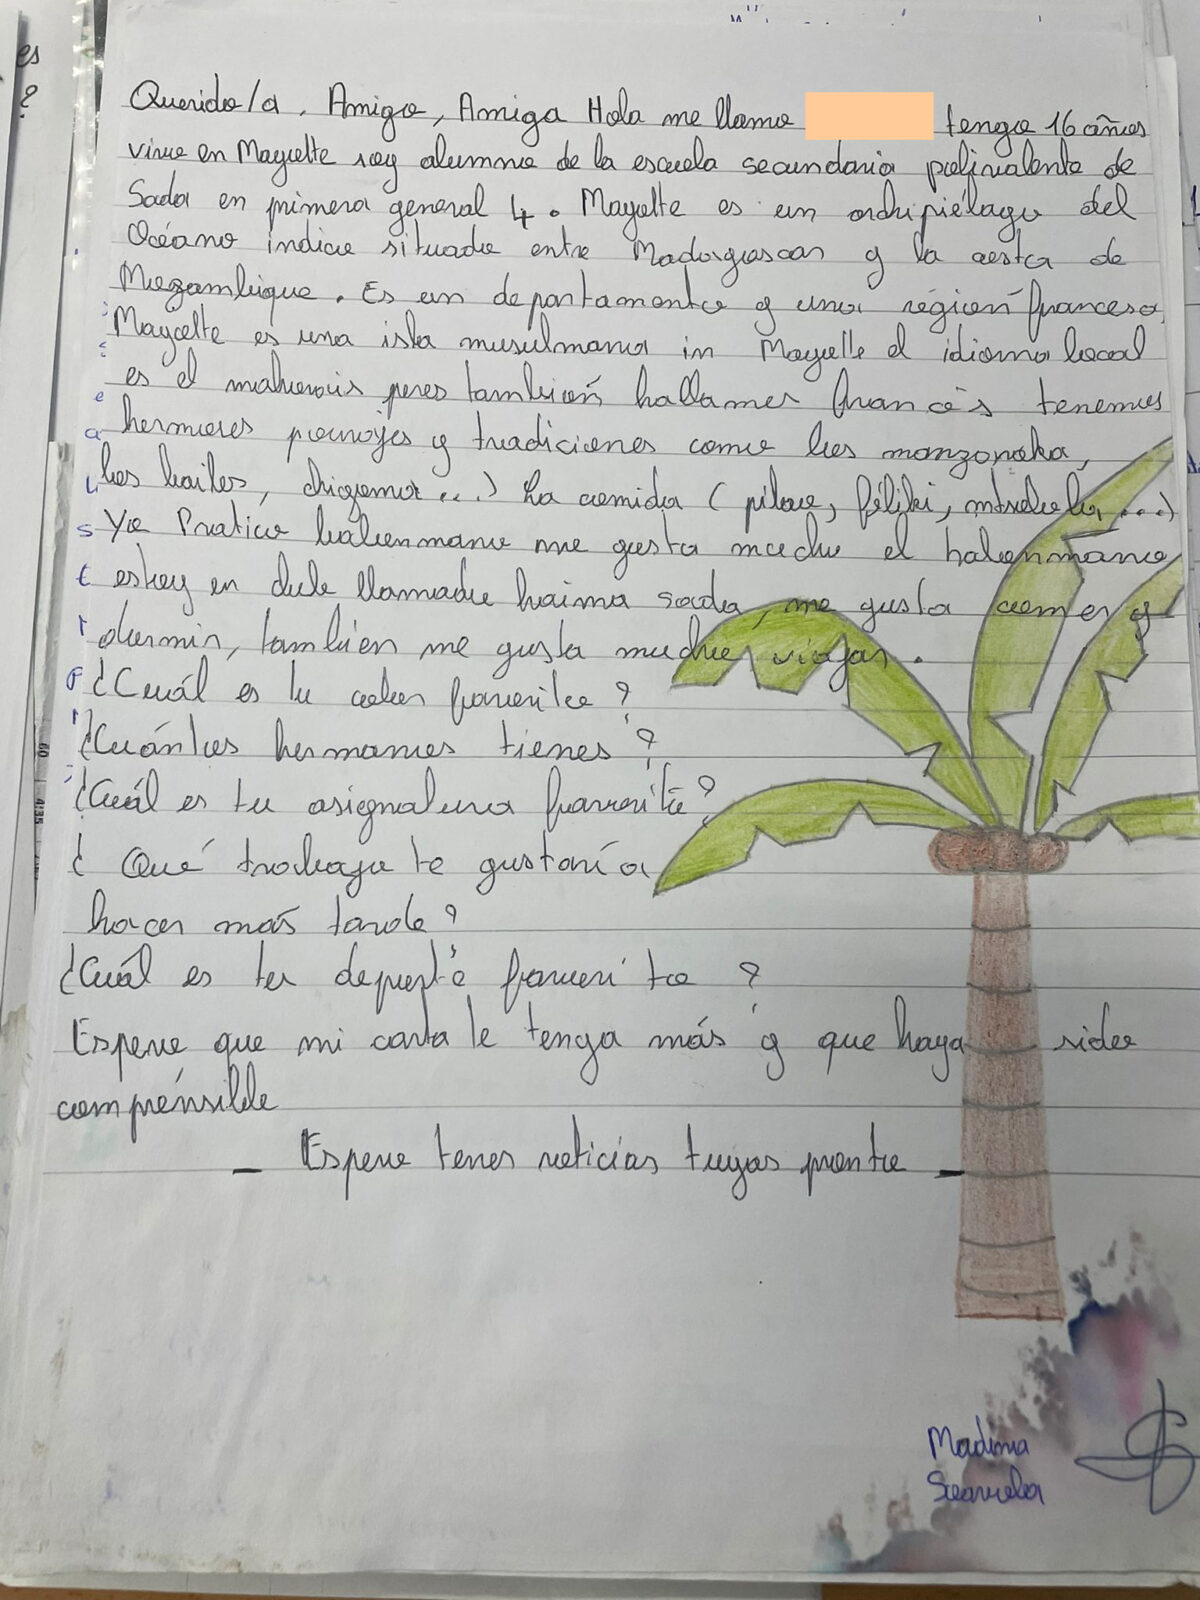 Querido/a. Amigo, Amiga Hola me llamo tengo 16 años
vivo en Mayotte soy alumno de la escuela secundaria polivalente de
Sada en primera general 4. Mayotte es un archipiélago del
Océano indico situado entre Madagascar y la costa de
Mozambique. Es un departamento y una région francesa,
Mayotte es una isla musulmana in Mayotte el idioma local
es el mahorais peros también hallamos francès tenemos
hermoses y tradiciones como los manzaraka,
los bailes, chigoma...) La comida (pilao, féliki, ...)
Yo Pratico balonmano me gusta mucho el balonmano
estoy en club llamado haima sada, me gusta comer y
dormir, también me gusta mucho viajar.
¿Cuál es tu color favorito?
¿Cuántos hermanos tienes?
¿Cuál es tu asignatura favorita?
¿Qué trabajo te gustaría
hacer más tarde?
¿Cuál es tu deporté favorito?
Espero que mi carta le tenga más y que haya sido
comprénsible
- Espero tener noticias tuyas pronto -
Madina